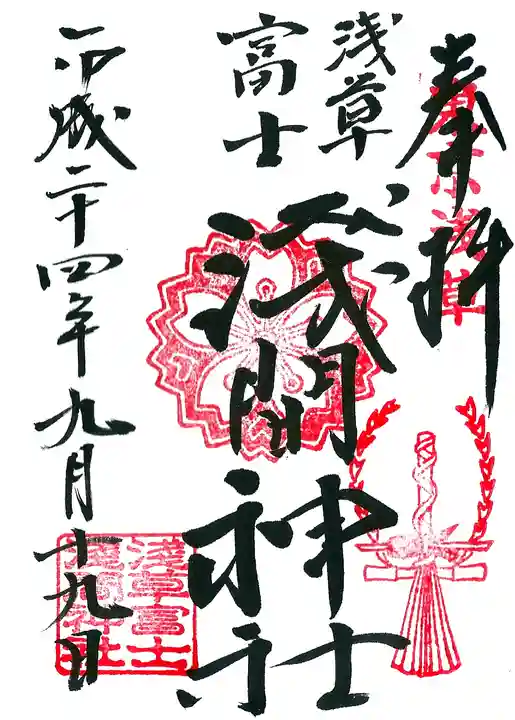 奉拝
東京浅草
浅草
富士
浅間神社
平成二十四年九月十九日
浅草富士
浅間神社